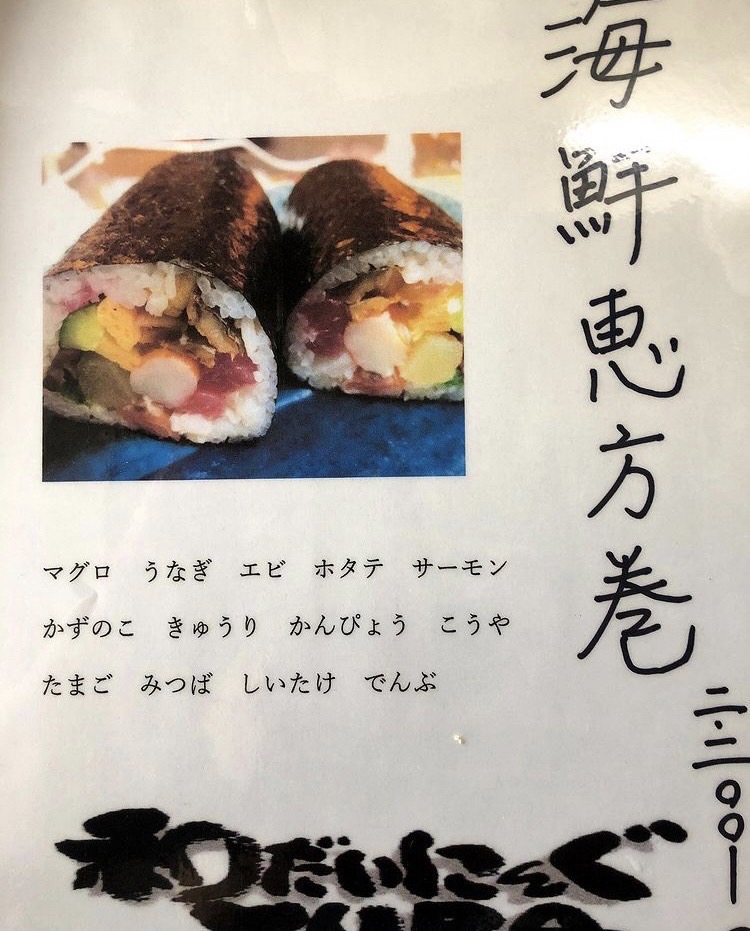 海鮮恵方巻
二.二〇〇
マグロ　うなぎ　エビ　ホタテ　サーモン
かずのこ　きゅうり　かんぴょう　こうや
たまご　みつば　しいたけ　でんぶ
和だいにんぐ